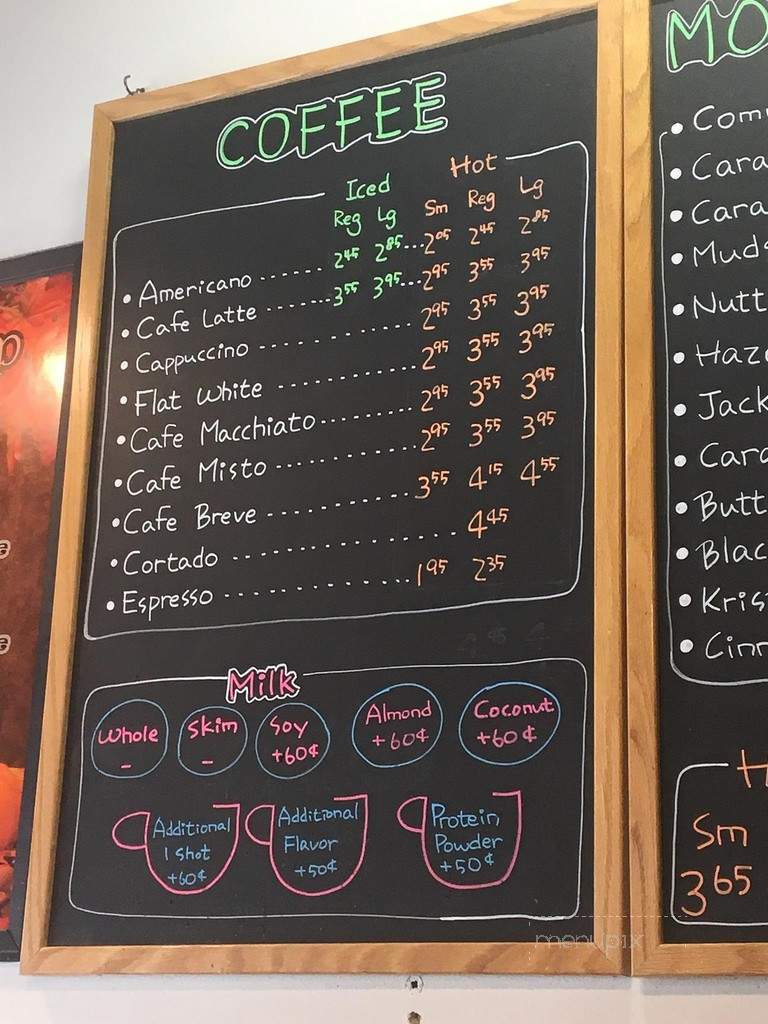 COFFEE
Iced Hot
Reg Lg Sm Reg Lg
• Americano ...... 2.45 2.85 ... 2.05 2.45 2.85
• Cafe Latte ...... 3.55 3.95 ... 2.95 3.55 3.95
• Cappuccino ............ 2.95 3.55 3.95
• Flat White ............ 2.95 3.55 3.95
• Cafe Macchiato ......... 2.95 3.55 3.95
• Cafe Misto ............ 2.95 3.55 3.95
• Cafe Breve ............ 3.55 4.15 4.55
• Cortado ............ 4.45
• Espresso ............ 1.95 2.35
Milk
Whole Skim Soy Almond Coconut
- - +60¢ +60¢ +60¢
Additional Additional Protein
1 Shot Flavor Powder
+60¢ +50¢ +50¢
MO
• Com
• Cara
• Cara
• Muds
• Nutt
• Haze
• Jack
• Cara
• Butt
• Blac
• Kris
• Cinn
H
Sm
3.65
menupix